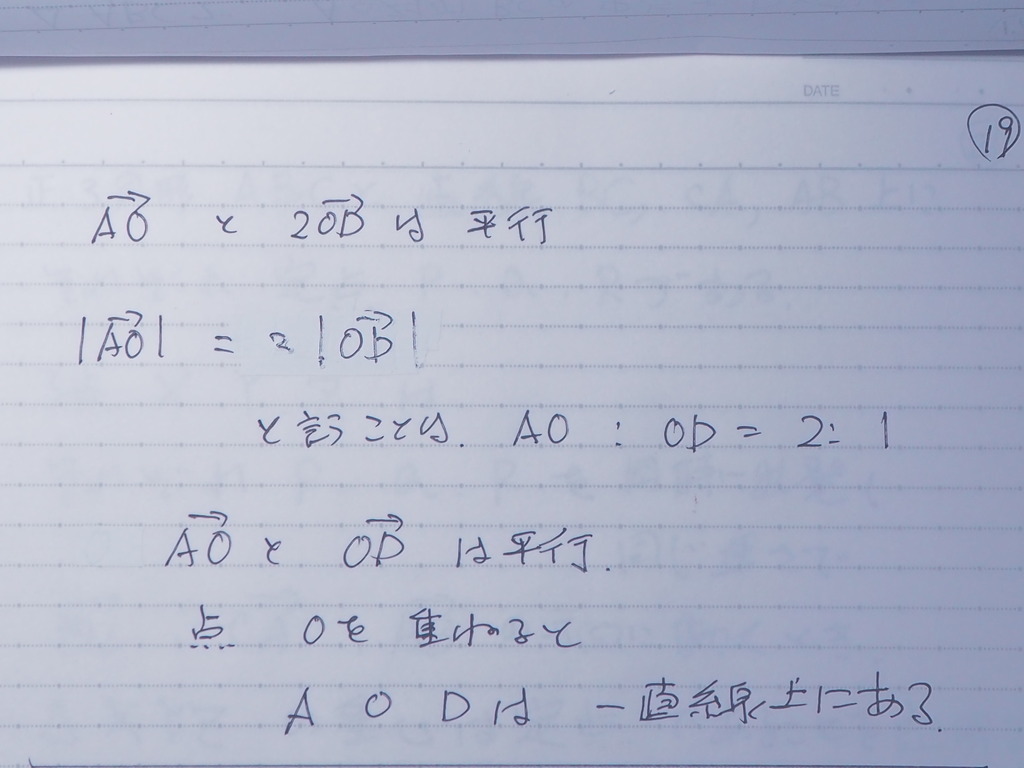 DATE
⑲
→AO と 2→OD は 平行
|→AO| = 2|→OD|
と言うことは. AO : OD = 2 : 1
→AO と →OD は平行.
点 Oを 重ねると
A O D は 一直線上にある.